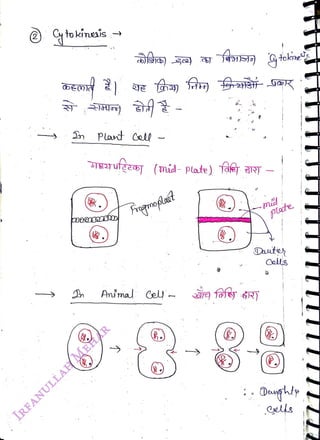 ② Cytokinesis →
कोशिका द्रव्य का विभाजन Cytokinesis
कहलाता है। यह क्रिया निम्न क्रियाओं प्रकार
से समान्न होती है -
→ In Plant Cell -
मध्यपट्टिका (mid-Plate) विधि द्वारा -
Fragmoplast
mid
plate
Dauter
Cells
→ In Animal Cell - खाँच विधि द्वारा
∴ Daughty
Cells
IRFANULLAH MEHAR